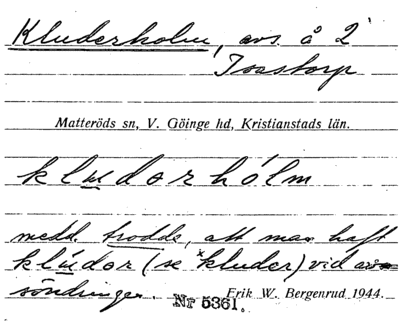 Kluderholm, avs. å 2
Toastorp
Matteröds sn, V. Göinge hd, Kristianstads län.
kludorhólm
medd. trodde, att man haft
klúdor (se *kluder) vid av-
söndringen.
Nr 5361.
Erik W. Bergenrud 1944.